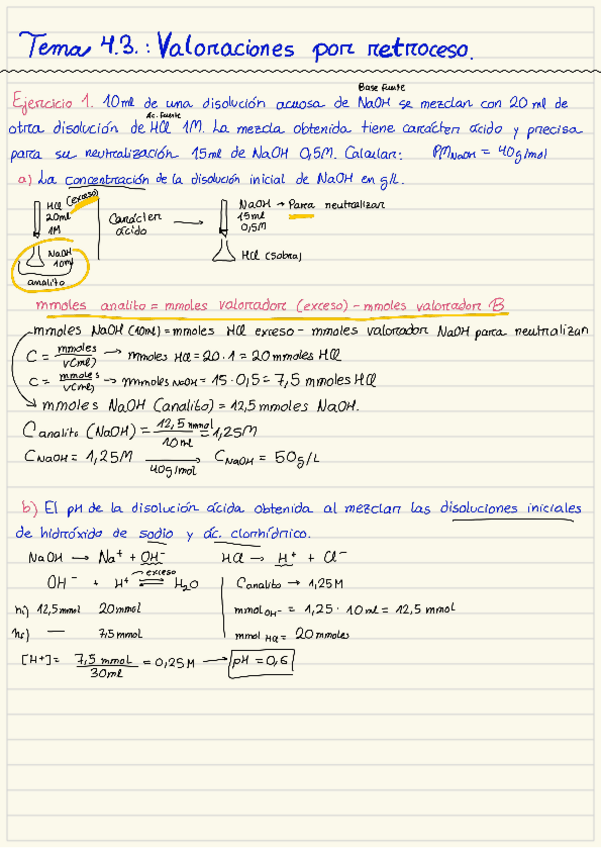 Tema 4.3.: Valoraciones por retroceso.
Base fuerte
Ejercicio 1. 10ml de una disolución acuosa de NaOH se mezclan con 20 ml de
Ac. fuerte
otra disolución de HCl 1M. La mezcla obtenida tiene carácter ácido y precisa
para su neutralización 15ml de NaOH 0,5M. Calcular: PM NaOH = 40g/mol
a) La concentración de la disolución inicial de NaOH en g/L.
HCl (exceso)
20ml
1M
NaOH
10ml
analito
Carácter
ácido
NaOH → Para neutralizar
15ml
0,5M
HCl (sobra)
mmoles analito = mmoles valorador (exceso) - mmoles valorador B
mmoles NaOH (10ml) = mmoles HCl exceso - mmoles valorador NaOH para neutralizar
C = mmoles / V(ml) → mmoles HCl = 20 · 1 = 20 mmoles HCl
C = mmoles / V(ml) → mmoles NaOH = 15 · 0,5 = 7,5 mmoles HCl
→ mmoles NaOH (analito) = 12,5 mmoles NaOH.
C analito (NaOH) = 12,5 mmol / 10 ml = 1,25M
C NaOH = 1,25M → 40g/mol C NaOH = 50g/L
b) El pH de la disolución ácida obtenida al mezclar las disoluciones iniciales
de hidróxido de sodio y ác. clorhídrico.
NaOH → Na⁺ + OH⁻ HCl → H⁺ + Cl⁻
exceso
OH⁻ + H⁺ ⇌ H₂O
ni) 12,5 mmol 20mmol
nf) — 7,5 mmol
C analito → 1,25M
mmol OH⁻ = 1,25 · 10 ml = 12,5 mmol
mmol HCl = 20 mmoles
[H+] = 7,5 mmol / 30ml = 0,25M → pH = 0,6